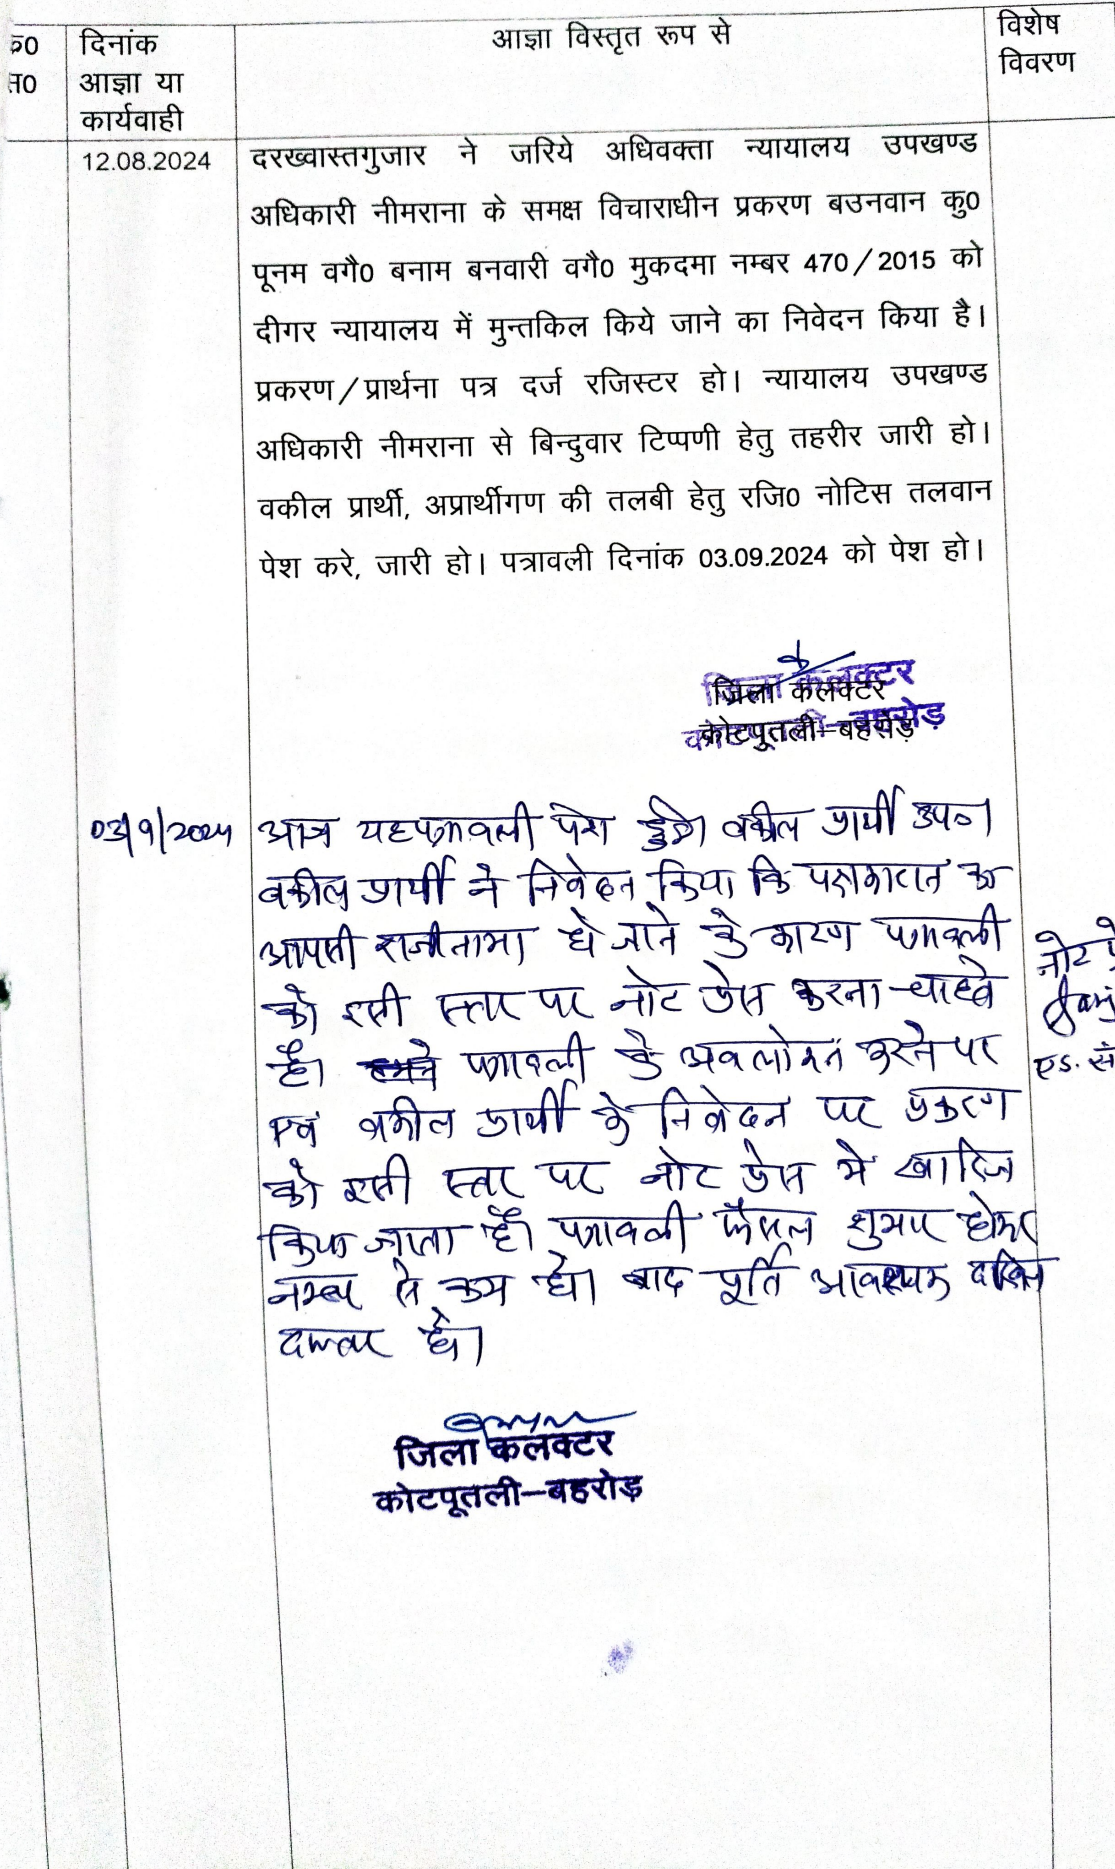 क0 स0
दिनांक आज्ञा या कार्यवाही
आज्ञा विस्तृत रूप से
विशेष विवरण
12.08.2024
दरख्वास्तगुजार ने जरिये अधिवक्ता न्यायालय उपखण्ड
अधिकारी नीमराना के समक्ष विचाराधीन प्रकरण बउनवान कु0
पूनम वगै0 बनाम बनवारी वगै0 मुकदमा नम्बर 470/2015 को
दीगर न्यायालय में मुन्तकिल किये जाने का निवेदन किया है।
प्रकरण/प्रार्थना पत्र दर्ज रजिस्टर हो। न्यायालय उपखण्ड
अधिकारी नीमराना से बिन्दुवार टिप्पणी हेतु तहरीर जारी हो।
वकील प्रार्थी, अप्रार्थीगण की तलबी हेतु रजि0 नोटिस तलवान
पेश करे, जारी हो। पत्रावली दिनांक 03.09.2024 को पेश हो।
जिला कलक्टर
कोटपूतली-बहरोड़
03/9/2024
आज यह पत्रावली पेश हुई। वकील प्रार्थी उप०।
वकील प्रार्थी ने निवेदन किया कि पक्षकारान का
आपसी राजीनामा हो जाने के कारण पत्रावली
को इसी स्तर पर नोट प्रेस करना चाहते
है। पत्रावली के अवलोकन करने पर
एवं वकील प्रार्थी के निवेदन पर प्रकरण
को इसी स्तर पर नोट प्रेस मे खारिज
किया जाता है। पत्रावली फैसल शुमार होकर
नम्बर से कम हो। बाद पूर्ति आवश्यक दाखिल
दफ्तर हो।
नोट प्रे
जिला कलक्टर
कोटपूतली-बहरोड़